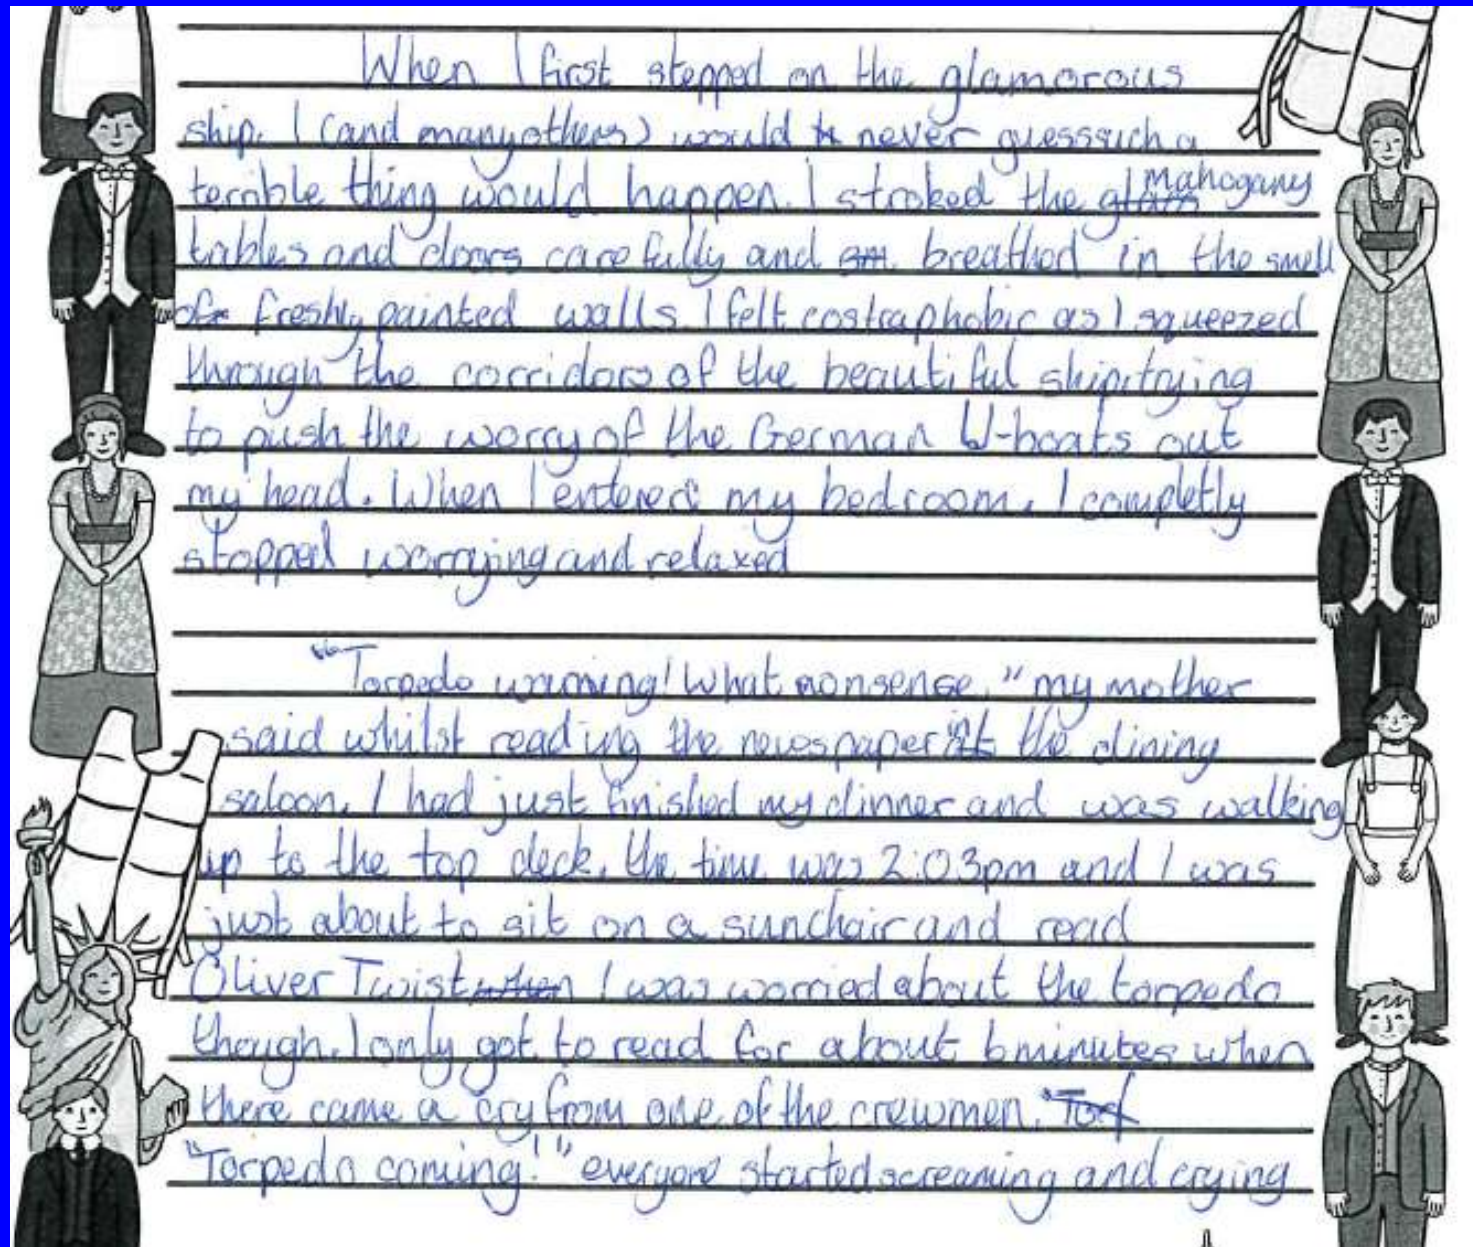 When I first stepped on the glamorous
ship. I (and many others) would never guess such a
terrible thing would happen. I stroked the mahogany
tables and doors carefully and breathed in the smell
of freshly painted walls. I felt costraphobic as I squeezed
through the corridors of the beautiful ship, trying
to push the worry of the German U-boats out
my head. When I entered my bedroom, I completly
stopped worrying and relaxed
"Torpedo warning! What nonsense," my mother
said whilst reading the newspaper in the dining
saloon. I had just finished my dinner and was walking
up to the top deck, the time was 2:03pm and I was
just about to sit on a sunchair and read
Oliver Twist. I was worried about the torpedo
though. I only got to read for about 6 minutes when
there came a cry from one of the crewmen.
"Torpedo coming!" everyone started screaming and crying